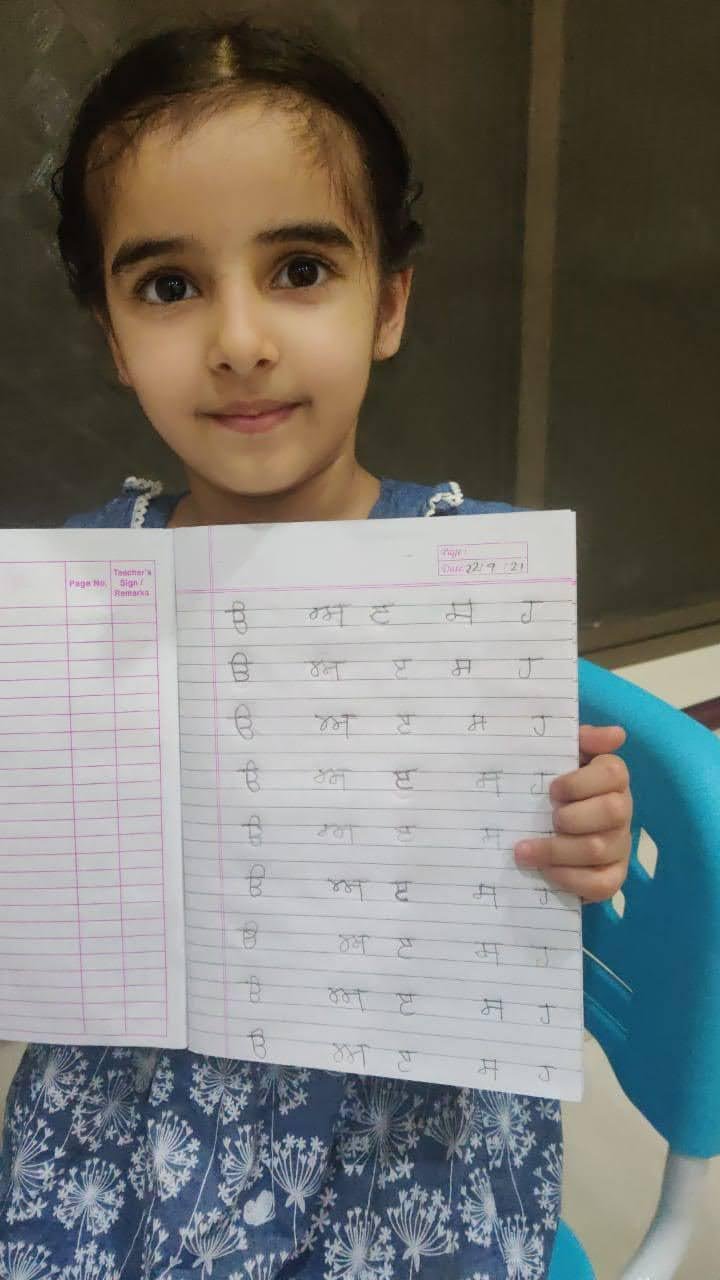 Page No. Teacher's Sign / Remarks
Page:
Date: 22/9/21
ੳ ਅ ੲ ਸ ਹ
ੳ ਅ ੲ ਸ ਹ
ੳ ਅ ੲ ਸ ਹ
ੳ ਅ ੲ ਸ ਹ
ੳ ਅ ੲ ਸ
ੳ ਅ ੲ ਸ ਹ
ੳ ਅ ੲ ਸ ਹ
ੳ ਅ ੲ ਸ ਹ
ੳ ਅ ੲ ਸ ਹ